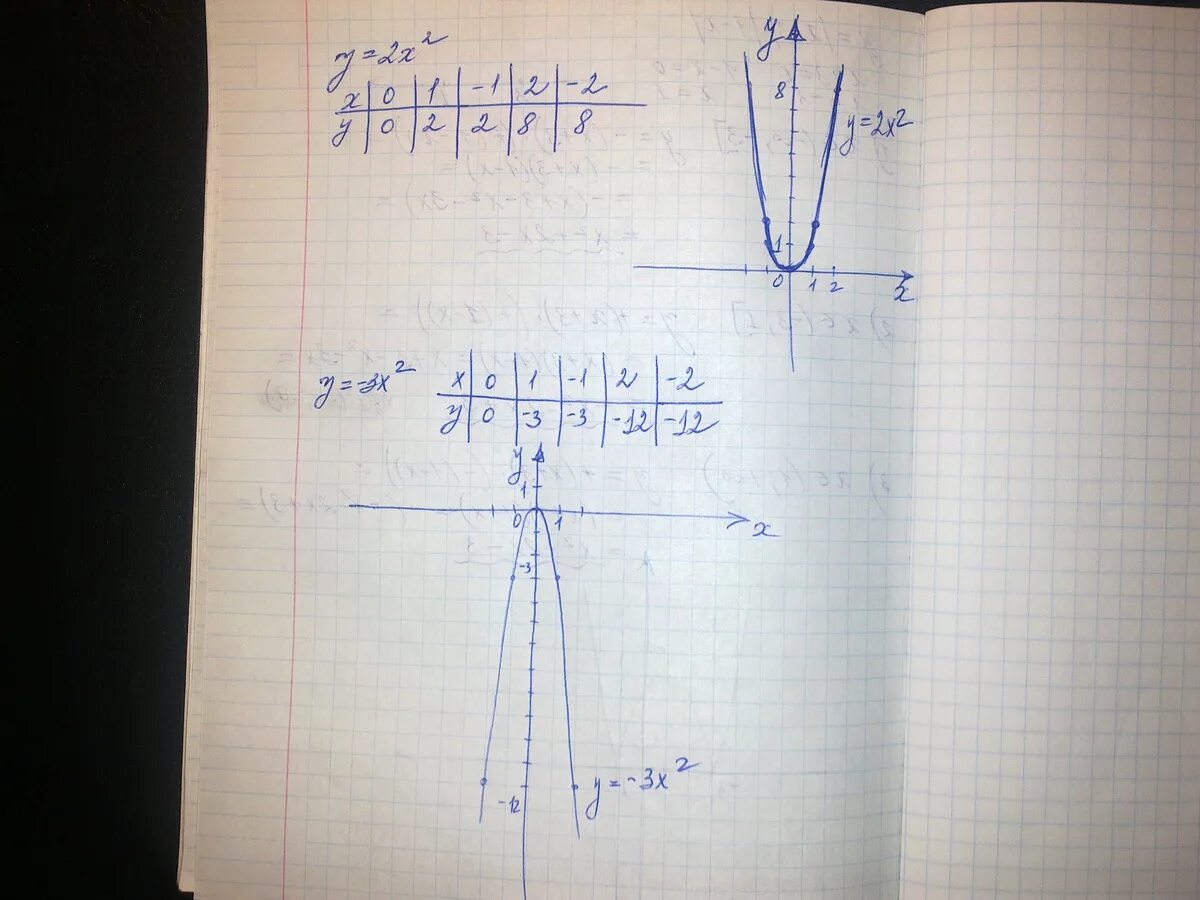 y = 2x²
x 0 1 -1 2 -2
y 0 2 2 8 8
y
8
y = 2x²
1
0 1 2
x
y = -3x²
x 0 1 -1 2 -2
y 0 -3 -3 -12 -12
y
1
0 1
x
-3
-12
y = -3x²